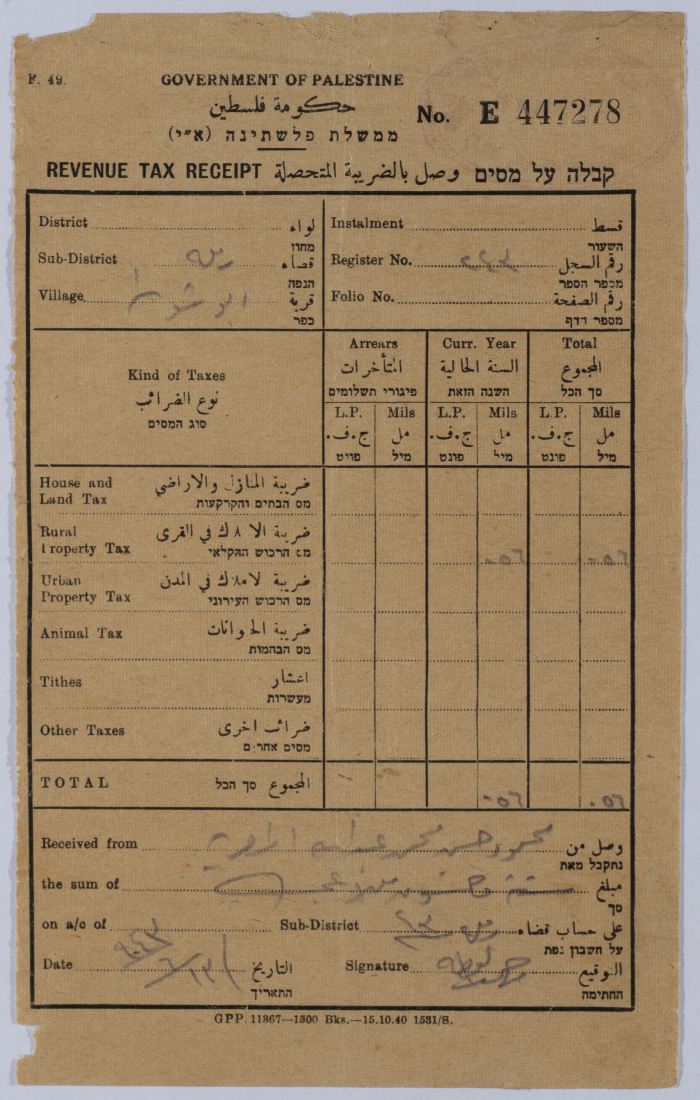 F. 49.
GOVERNMENT OF PALESTINE
حكومة فلسطين
ממשלת פלשתינה (א״י)
No. E 447278
REVENUE TAX RECEIPT وصل بالضريبة المتحصلة קבלה על מסים
District لواء
מחוז
Instalment قسط
השעור
Sub-District قضاء
הנפה
Register No. رقم السجل
מספר הספר
Village قرية
כפר
Folio No. رقم الصفحة
מספר הדף
Kind of Taxes
نوع الضرائب
סוג המסים
Arrears Curr. Year Total
المتأخرات السنة الحالية المجموع
פיגורי תשלומים השנה הזאת סך הכל
L.P. Mils L.P. Mils L.P. Mils
ج.ف. مل ج.ف. مل ج.ف. مل
פונט מיל פונט מיל פונט מיל
House and Land Tax ضريبة المنازل والاراضي
מס הבתים והקרקעות
Rural Property Tax ضريبة الاملاك في القرى
מס הרכוש החקלאי
٥٦ ٥٦
Urban Property Tax ضريبة الاملاك في المدن
מס הרכוש העירוני
Animal Tax ضريبة الحيوانات
מס הבהמות
Tithes اعشار
מעשרות
Other Taxes ضرائب اخرى
מסים אחרים
TOTAL المجموع סך הכל
٥٦ ٥٦
Received from وصل من
נתקבל מאת
the sum of مبلغ
סך
on a/c of Sub-District على حساب قضاء
על חשבון נפת
Date التاريخ
התאריך
Signature التوقيع
החתימה
GPP. 11367—1500 Bks.—15.10.40 1531/S.